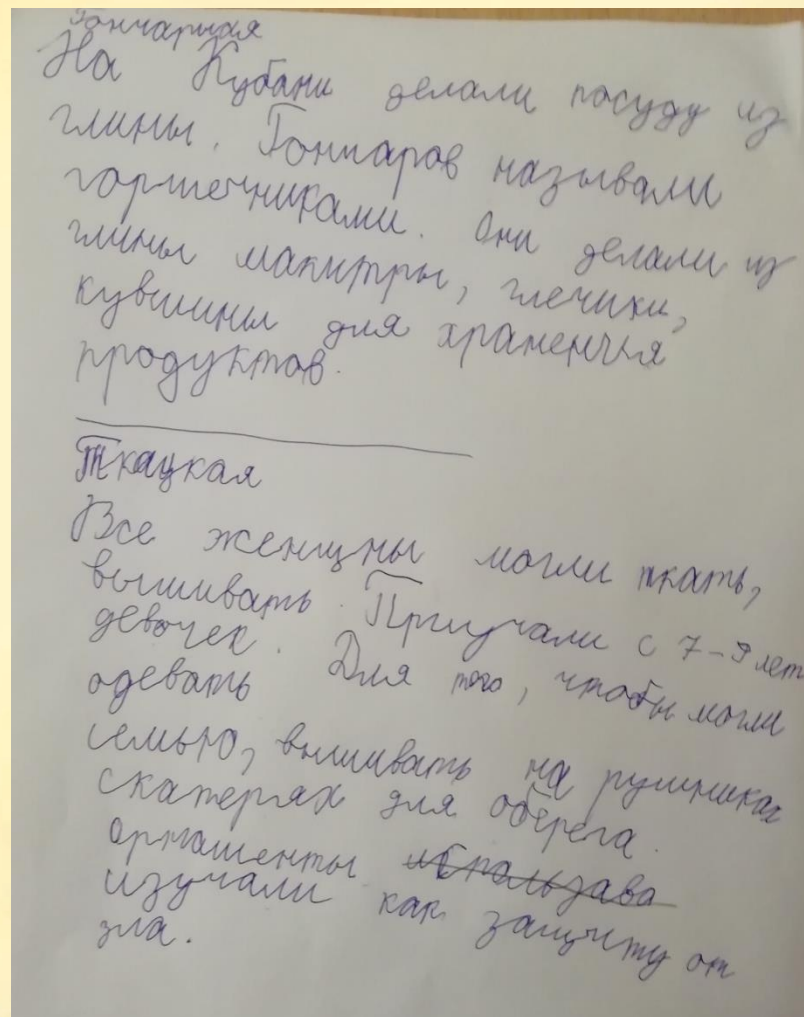 Гончарная
На Кубани делали посуду из
глины. Гончаров называли
горшечниками. Они делали из
глины макитры, глечики,
кувшины для храненья
продуктов.
Ткацкая
Все женщины могли ткать,
вышивать. Приучали с 7-9 лет
девочек. Для того, чтобы могли
одевать
семью, вышивать на рушниках
скатертях для оберега.
орнаменты использава
изучали как защиту от
зла.